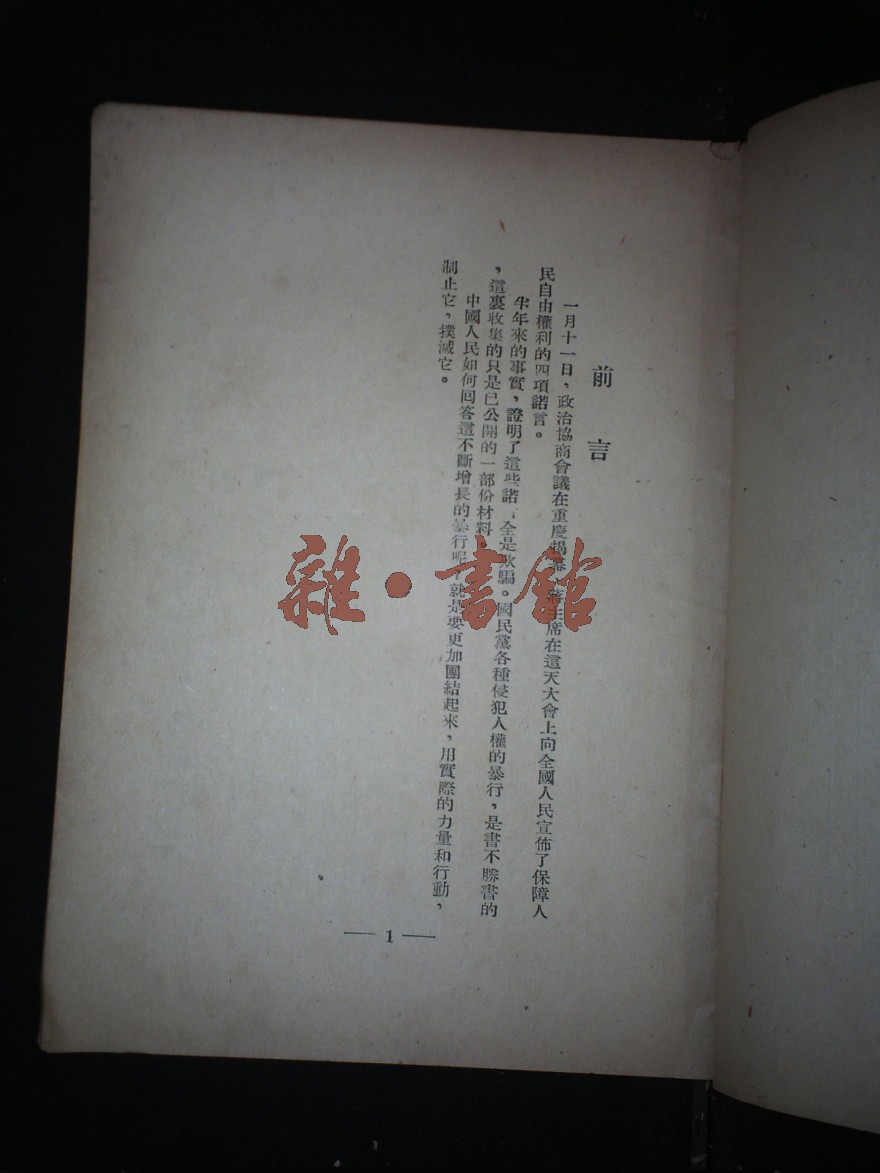 前言
一月十一日，政治協商會議在重慶揭幕，蔣主席在這天大會上向全國人民宣佈了保障人
民自由權利的四項諾言。
半年來的事實，證明了這些諾，全是欺騙。國民黨各種侵犯人權的暴行，是書不勝書的
，這裏收集的只是已公開的一部份材料。
中國人民如何回答這不斷增長的暴行呢？就是要更加團結起來，用實際的力量和行動，
制止它，撲滅它。
— 1 —
雜·書館